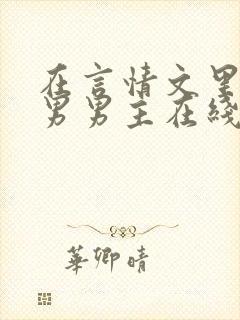 在言情文里
男男主在綫
華卿晴